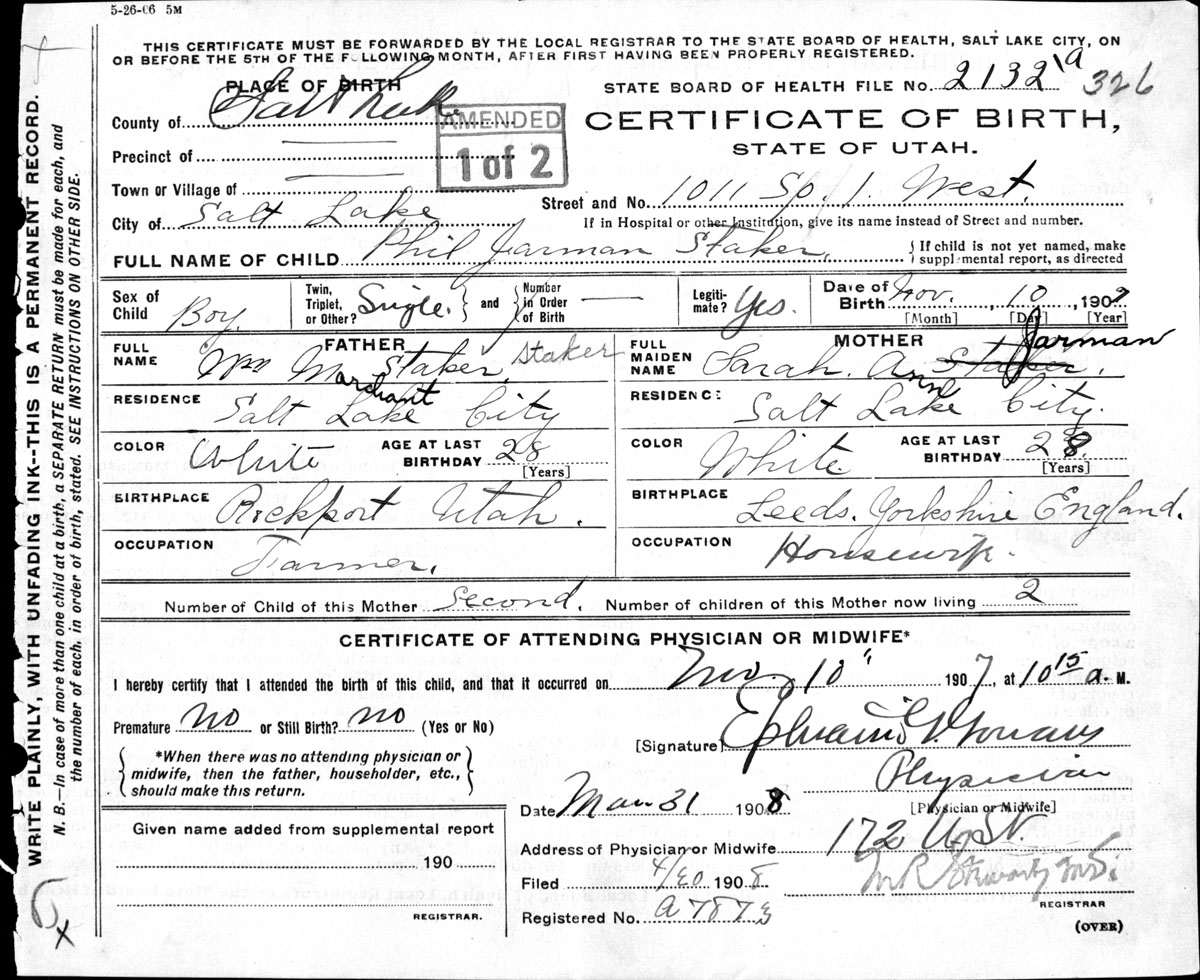 5-26-06 5M
THIS CERTIFICATE MUST BE FORWARDED BY THE LOCAL REGISTRAR TO THE STATE BOARD OF HEALTH, SALT LAKE CITY, ON
OR BEFORE THE 5TH OF THE FOLLOWING MONTH, AFTER FIRST HAVING BEEN PROPERLY REGISTERED.
PLACE OF BIRTH
STATE BOARD OF HEALTH FILE No. 2132 19 326
County of Salt Lake
AMENDED
1 of 2
CERTIFICATE OF BIRTH,
STATE OF UTAH.
Precinct of
Town or Village of
Street and No. 1011 So. 1. West.
City of Salt Lake
If in Hospital or other Institution, give its name instead of Street and number.
FULL NAME OF CHILD Phil Jarman Staker.
{ If child is not yet named, make
supplemental report, as directed
Sex of Child Boy.
Twin, Triplet, or Other? Single. } and { Number in Order of Birth
Legiti-mate? Yes.
Date of Birth Nov. 10, 1907
[Month] [Day] [Year]
FATHER
FULL NAME Wm Marchant Staker, Staker
MOTHER
FULL MAIDEN NAME Sarah. Ann Staker. Jarman
RESIDENCE Salt Lake City
RESIDENCE Salt Lake City.
COLOR White AGE AT LAST BIRTHDAY 28 [Years]
COLOR White AGE AT LAST BIRTHDAY 28 [Years]
BIRTHPLACE Rockport Utah.
BIRTHPLACE Leeds. Yorkshire England.
OCCUPATION Farmer.
OCCUPATION Housewife.
Number of Child of this Mother Second. Number of children of this Mother now living 2
CERTIFICATE OF ATTENDING PHYSICIAN OR MIDWIFE*
I hereby certify that I attended the birth of this child, and that it occurred on Nov 10 1907, at 10 15 a. M.
Premature no or Still Birth? no (Yes or No)
[Signature]
{ *When there was no attending physician or
midwife, then the father, householder, etc.,
should make this return. }
Physician
[Physician or Midwife]
Date Mar 31 1908
Given name added from supplemental report
190
REGISTRAR.
Address of Physician or Midwife 172 U, St.
Filed 4/20 1908
REGISTRAR
Registered No. a 7873
(OVER)
WRITE PLAINLY, WITH UNFADING INK--THIS IS A PERMANENT RECORD.
N. B.—In case of more than one child at a birth, a SEPARATE RETURN must be made for each, and
the number of each, in order of birth, stated. SEE INSTRUCTIONS ON OTHER SIDE.